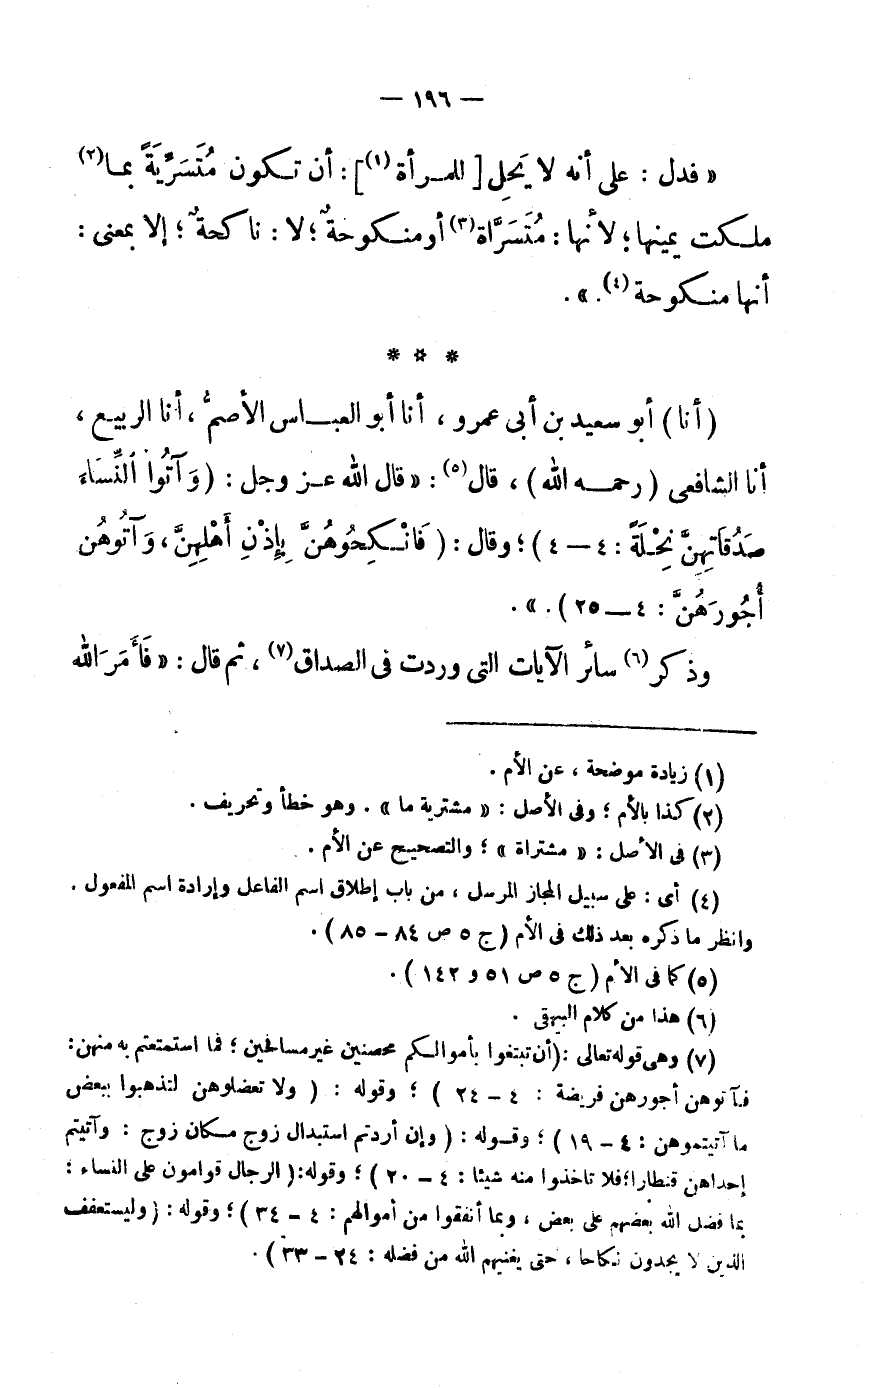 — ١٩٦ —
« فدل : على أنه لا يَحِل [ للمرأة (١) ] : أن تكون مُتَسَرِّيَةً بما (٢)
ملكت يمينها ؛ لأنها : مُتَسَرَّاة (٣) أو منكوحةٌ ؛ لا : ناكحةٌ ؛ إلا بمعنى :
أنها منكوحة (٤) . » .
* * *
( أنا ) أبو سعيد بن أبى عمرو ، أنا أبو العباس الأصمُّ ، أنا الربيع ،
أنا الشافعى ( رحمه الله ) ، قال (٥) : « قال الله عز وجل : ( وَآتُوا النِّسَاءَ
صَدُقَاتِهِنَّ نِحْلَةً : ٤ — ٤ ) ؛ وقال : ( فَانْكِحُوهُنَّ بِإِذْنِ أَهْلِهِنَّ ، وَآتُوهُن
أُجُورَهُنَّ : ٤ — ٢٥ ) . » .
وذكر (٦) سائر الآيات التى وردت فى الصداق (٧) ، ثم قال : « فَأَمَرَ الله
(١) زيادة موضحة ، عن الأم .
(٢) كذا بالأم ؛ وفى الأصل : « مشترية ما » . وهو خطأ وتحريف .
(٣) فى الأصل : « مشتراة » ؛ والتصحيح عن الأم .
(٤) أى : على سبيل المجاز المرسل ، من باب إطلاق اسم الفاعل وإرادة اسم المفعول .
وانظر ما ذكره بعد ذلك فى الأم ( ج ٥ ص ٨٤ — ٨٥ ) .
(٥) كما فى الأم ( ج ٥ ص ٥١ و ١٤٢ ) .
(٦) هذا من كلام البيهقى .
(٧) وهى قوله تعالى : ( أن تبتغوا بأموالكم محصنين غير مسافحين ؛ فما استمتعتم به منهن :
فآتوهن أجورهن فريضة : ٤ — ٢٤ ) ؛ وقوله : ( ولا تعضلوهن لتذهبوا ببعض
ما آتيتموهن : ٤ — ١٩ ) ؛ وقوله : ( وإن أردتم استبدال زوج مكان زوج : وآتيتم
إحداهن قنطارا ؛ فلا تاخذوا منه شيئا : ٤ — ٢٠ ) ؛ وقوله : ( الرجال قوامون على النساء :
بما فضل الله بعضهم على بعض ، وبما أنفقوا من أموالهم : ٤ — ٣٤ ) ؛ وقوله : ( وليستعفف
الذين لا يجدون نكاحا ، حتى يغنيهم الله من فضله : ٢٤ — ٣٣ ) .